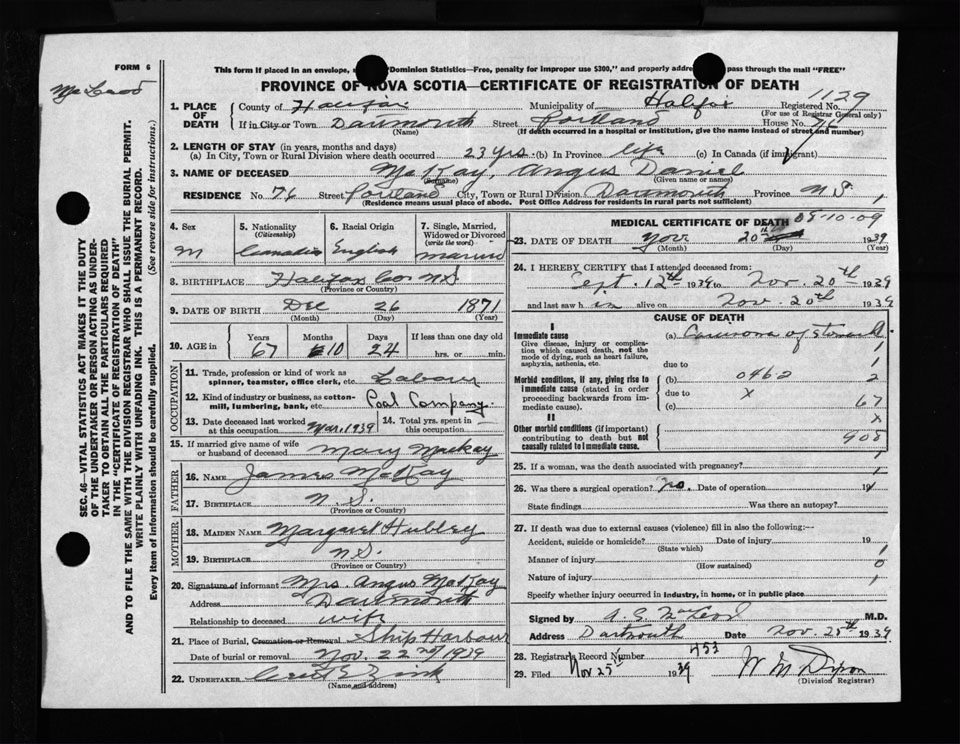 FORM 6
This form if placed in an envelope, Dominion Statistics—Free, penalty for improper use $300," and properly addre pass through the mail "FREE"
MacLeod
PROVINCE OF NOVA SCOTIA—CERTIFICATE OF REGISTRATION OF DEATH
1129
1. PLACE OF DEATH
County of Halifax Municipality of Halifax Registered No.
(For use of Registrar General only)
If in City or Town Dartmouth Street Portland House No. 76
(Name) (If death occurred in a hospital or institution, give the name instead of street and number)
2. LENGTH OF STAY (in years, months and days)
(a) In City, Town or Rural Division where death occurred 23 yrs. (b) In Province life (c) In Canada (if immigrant)
3. NAME OF DECEASED MacKay, Angus Daniel
(Surname) (Given name or names)
RESIDENCE No. 76 Street Portland City, Town or Rural Division Dartmouth Province N.S.
(Residence means usual place of abode. Post Office Address for residents in rural parts not sufficient)
SEC. 46—VITAL STATISTICS ACT MAKES IT THE DUTY
OF THE UNDERTAKER OR PERSON ACTING AS UNDER-
TAKER TO OBTAIN ALL THE PARTICULARS REQUIRED
IN THE "CERTIFICATE OF REGISTRATION OF DEATH"
AND TO FILE THE SAME WITH THE DIVISION REGISTRAR WHO SHALL ISSUE THE BURIAL PERMIT.
WRITE PLAINLY WITH UNFADING INK. THIS IS A PERMANENT RECORD.
Every item of information should be carefully supplied. (See reverse side for instructions.)
4. Sex M
5. Nationality (Citizenship) Canadian
6. Racial Origin English
7. Single, Married, Widowed or Divorced (write the word) married
8. BIRTHPLACE Halifax Co. N.S.
(Province or Country)
9. DATE OF BIRTH Dec 26 1871
(Month) (Day)
10. AGE in Years Months Days If less than one day old
67 10 24 hrs. or min.
OCCUPATION
11. Trade, profession or kind of work as spinner, teamster, office clerk, etc. Labour
12. Kind of industry or business, as cotton-mill, lumbering, bank, etc. Coal Company.
13. Date deceased last worked at this occupation Mar. 1939 14. Total yrs. spent in this occupation
15. If married give name of wife or husband of deceased Mary Mackay
FATHER
16. NAME James MacKay
17. BIRTHPLACE N.S.
(Province or Country)
MOTHER
18. MAIDEN NAME Margaret Hubley
19. BIRTHPLACE N.S.
(Province or Country)
20. Signature of informant Mrs. Angus MacKay
Address Dartmouth
Relationship to deceased wife
21. Place of Burial, Cremation or Removal Ship Harbour
Date of burial or removal Nov. 22nd 1939
22. UNDERTAKER Zink
(Name and address)
MEDICAL CERTIFICATE OF DEATH
23. DATE OF DEATH Nov 20th 1939
(Month) (Day)
24. I HEREBY CERTIFY that I attended deceased from:
Sept. 12th 1939 to Nov. 20th 1939
and last saw h im alive on Nov. 20th 1939
CAUSE OF DEATH
I
Immediate cause
Give disease, injury or complication which caused death, not the mode of dying, such as heart failure, asphyxia, asthenia, etc.
(a) Carcinoma of stomach
due to
Morbid conditions, if any, giving rise to immediate cause (stated in order proceeding backwards from immediate cause).
(b) 0462 2
due to x
(c) 67
II x
Other morbid conditions (if important) contributing to death but not causally related to immediate cause.
908
25. If a woman, was the death associated with pregnancy?
26. Was there a surgical operation? no. Date of operation 19
State findings Was there an autopsy?
27. If death was due to external causes (violence) fill in also the following:—
Accident, suicide or homicide? Date of injury 19
(State which)
Manner of injury
(How sustained)
Nature of injury
Specify whether injury occurred in industry, in home, or in public place
Signed by A. S. MacLeod M.D.
Address Dartmouth Date Nov. 25th 1939
28. Registrar's Record Number 453
29. Filed Nov 25 1939 W M Dixon
(Division Registrar)